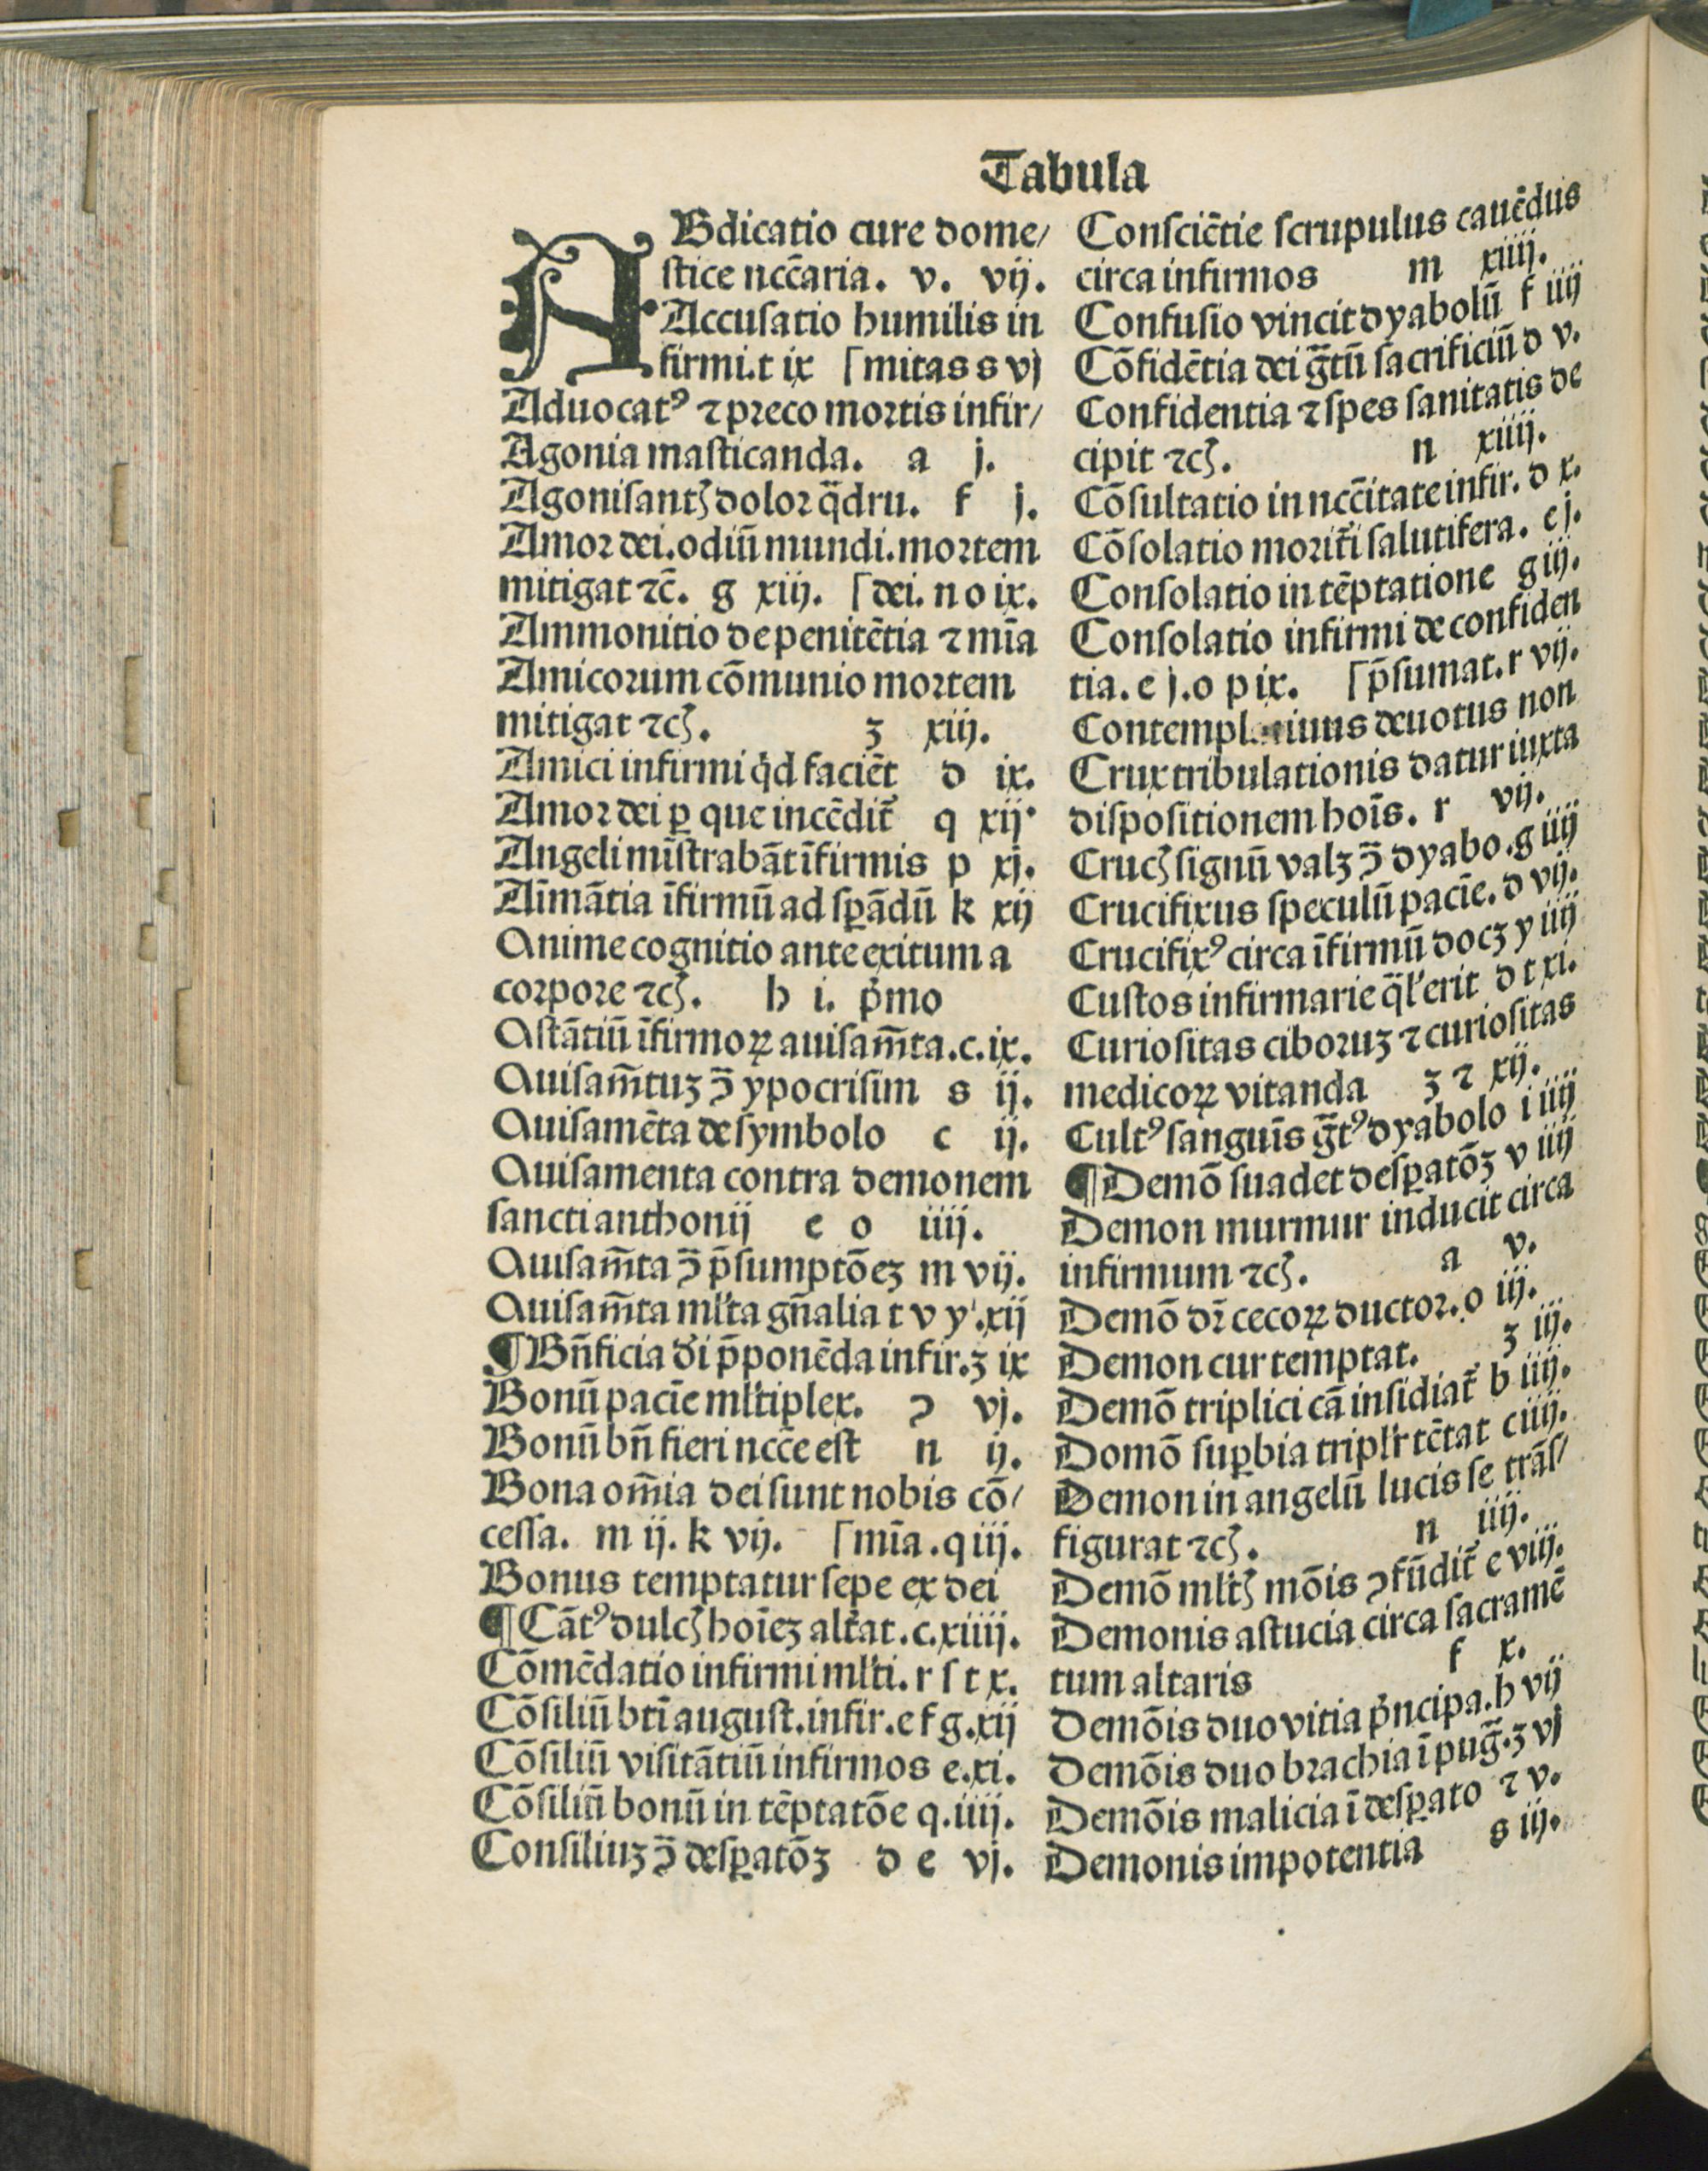 Tabula
ABdicatio cure dome/
stice nccāria. v. vij.
Accusatio humilis in
firmi.t ix [mitas s vj
Aduocatꝰ ⁊ preco mortis infir/
Agonia masticanda. a j.
Agonisantꝭ dolor q̄dru. f j.
Amor dei.odiū mundi.mortem
mitigat ⁊c̄. g xiij. [dei. n o ix.
Ammonitio de penitētia ⁊ mīa
Amicorum cōmunio mortem
mitigat ⁊cꝭ. ʒ xiij.
Amici infirmi qͥd faciēt d ix.
Amor dei ꝑ que incēdit᷑ q xij
Angeli mīstrabāt īfirmis p xj.
Aīmātia īfirmū ad sꝑādū k xij
Anime cognitio ante exitum a
corpore ⁊cꝭ. h i. pͥmo
Astātiū īfirmoꝝ auisam̄ta.c.ix.
Auisam̄tuʒ ꝯ̄ ypocrisim s ij.
Auisamēta de symbolo c ij.
Auisamenta contra demonem
sancti anthonij e o iiij.
Auisam̄ta ꝯ̄ p̄sumptōeʒ m vij.
Auisam̄ta ml̓ta gn̄alia t v y .xij
¶Bn̄ficia d̓i p̄ponēda infir.ʒ ix
Bonū pacīe ml̓tiplex. ꝯ vj.
Bonū bn̄ fieri ncc̄e est n ij.
Bona om̄ia dei sunt nobis cō/
cessa. m ij. k vij. [mīa .q iij.
Bonus temptatur sepe ex dei
¶Cātꝰ dulcꝭ hoīeʒ alt̓at.c.xiiij.
Cōmēdatio infirmi ml̓ti. r s t x.
Cōsiliū btī august.infir.e f g.xij
Cōsiliū visitātiū infirmos e.xi.
Cōsiliū bonū in tēptatōe q.iiij.
Consiliuʒ ꝯ̄ desꝑatōʒ d e vj.
Consciētie scrupulus cauēdus
circa infirmos m xiiij.
Confusio vincit dyabolū f iiij
Cōfidētia dei g̃tū sacrificiū d v.
Confidentia ⁊ spes sanitatis de
cipit ⁊cꝭ. n xiiij.
Cōsultatio in ncc̄itate infir. d x.
Cōsolatio morit᷑i salutifera. e j.
Consolatio in tēptatione g iij.
Consolatio infirmi de confiden
tia. e j.o p ix. [p̄sumat.r vij.
deuotus non
Crux tribulationis datur iuxta
dispositionem hoīs. r vij.
Crucꝭ signū valʒ ꝯ̄ dyabo.g iiij
Crucifixus speculū pacīe. d vij.
Crucifixꝰ circa īfirmū docʒ y iiij
Custos infirmarie q̄l̓ erit d t xi.
Curiositas ciboruʒ ⁊ curiositas
medicoꝝ vitanda ʒ ⁊ xij.
Cultꝰ sanguīs g̃tꝰ dyabolo i iiij
¶Demō suadet desꝑatōʒ v iiij
Demon murmur inducit circa
infirmum ⁊cꝭ. a v.
Demō dr̄ cecoꝝ ductor.o iij.
Demon cur temptat. ʒ iij.
Demō triplici cā insidiat᷑ b iiij.
Domō suꝑbia tripl̓r tētat c iiij.
Demon in angelū lucis se trās/
figurat ⁊cꝭ. n iiij.
Demō ml̓tꝭ mōis ꝯfūdit᷑ e viij.
Demonis astucia circa sacramē
tum altaris f x.
Demōis duo vitia pͥncipa.h vij
Demōis duo brachia ī pug̃.ʒ vj
Demōis malicia ī desꝑato ⁊ v.
Demonis impotentia s iij.